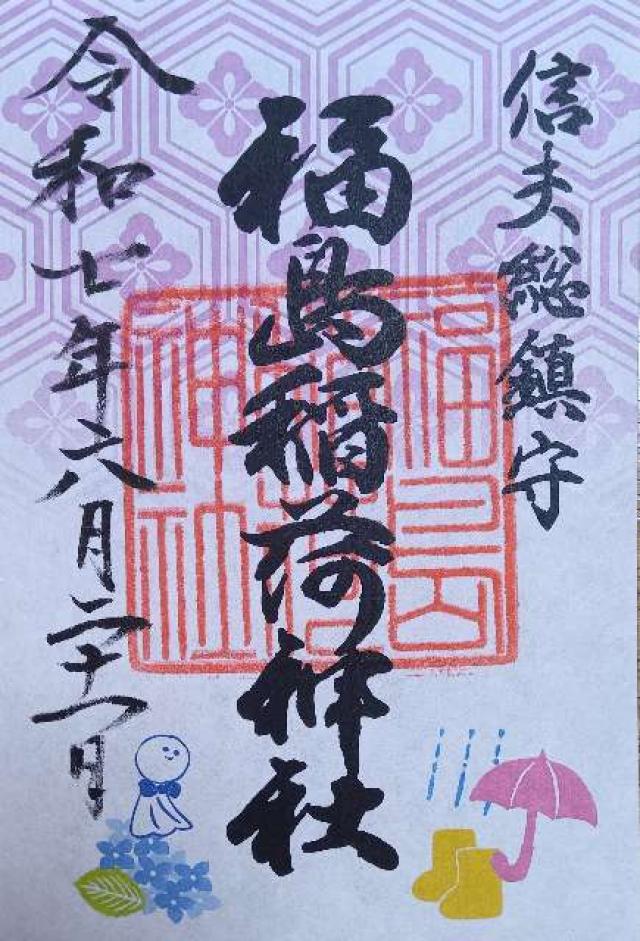 信夫総鎮守
福島稲荷神社
福島稲荷神社
令和七年六月二十一日